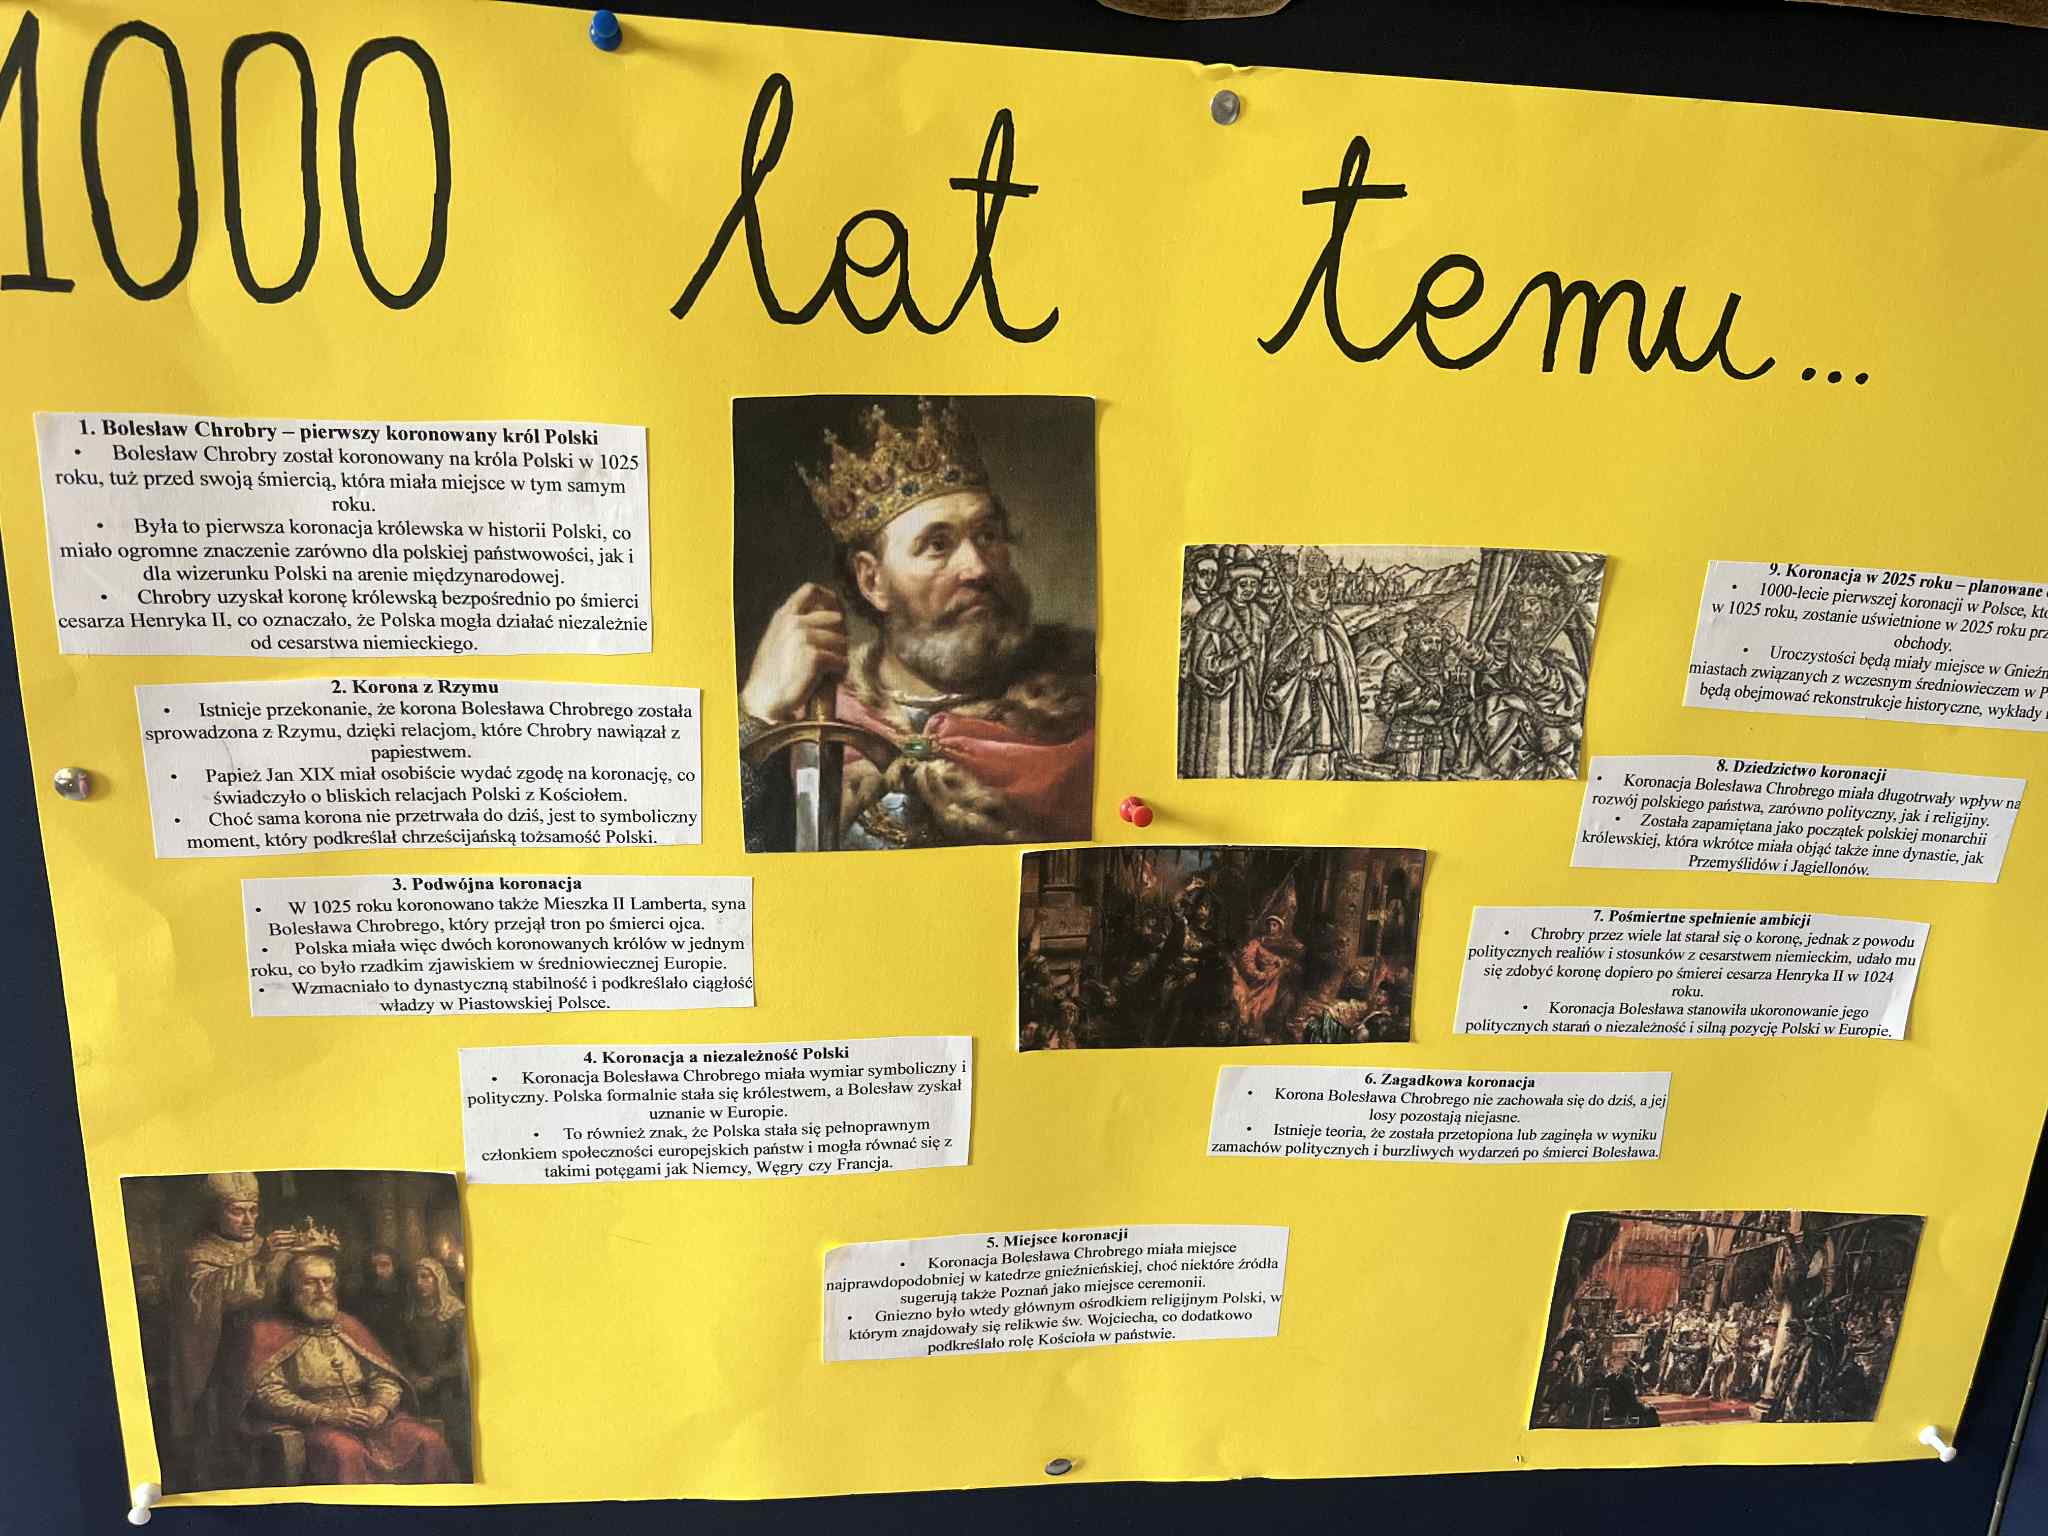 1000 lat temu...
1. Bolesław Chrobry – pierwszy koronowany król Polski
• Bolesław Chrobry został koronowany na króla Polski w 1025
roku, tuż przed swoją śmiercią, która miała miejsce w tym samym
roku.
• Była to pierwsza koronacja królewska w historii Polski, co
miało ogromne znaczenie zarówno dla polskiej państwowości, jak i
dla wizerunku Polski na arenie międzynarodowej.
• Chrobry uzyskał koronę królewską bezpośrednio po śmierci
cesarza Henryka II, co oznaczało, że Polska mogła działać niezależnie
od cesarstwa niemieckiego.
2. Korona z Rzymu
• Istnieje przekonanie, że korona Bolesława Chrobrego została
sprowadzona z Rzymu, dzięki relacjom, które Chrobry nawiązał z
papiestwem.
• Papież Jan XIX miał osobiście wydać zgodę na koronację, co
świadczyło o bliskich relacjach Polski z Kościołem.
• Choć sama korona nie przetrwała do dziś, jest to symboliczny
moment, który podkreślał chrześcijańską tożsamość Polski.
3. Podwójna koronacja
• W 1025 roku koronowano także Mieszka II Lamberta, syna
Bolesława Chrobrego, który przejął tron po śmierci ojca.
• Polska miała więc dwóch koronowanych królów w jednym
roku, co było rzadkim zjawiskiem w średniowiecznej Europie.
• Wzmacniało to dynastyczną stabilność i podkreślało ciągłość
władzy w Piastowskiej Polsce.
4. Koronacja a niezależność Polski
• Koronacja Bolesława Chrobrego miała wymiar symboliczny i
polityczny. Polska formalnie stała się królestwem, a Bolesław zyskał
uznanie w Europie.
• To również znak, że Polska stała się pełnoprawnym
członkiem społeczności europejskich państw i mogła równać się z
takimi potęgami jak Niemcy, Węgry czy Francja.
5. Miejsce koronacji
• Koronacja Bolesława Chrobrego miała miejsce
najprawdopodobniej w katedrze gnieźnieńskiej, choć niektóre źródła
sugerują także Poznań jako miejsce ceremonii.
• Gniezno było wtedy głównym ośrodkiem religijnym Polski, w
którym znajdowały się relikwie św. Wojciecha, co dodatkowo
podkreślało rolę Kościoła w państwie.
6. Zagadkowa koronacja
• Korona Bolesława Chrobrego nie zachowała się do dziś, a jej
losy pozostają niejasne.
• Istnieje teoria, że została przetopiona lub zaginęła w wyniku
zamachów politycznych i burzliwych wydarzeń po śmierci Bolesława.
7. Pośmiertne spełnienie ambicji
• Chrobry przez wiele lat starał się o koronę, jednak z powodu
politycznych realiów i stosunków z cesarstwem niemieckim, udało mu
się zdobyć koronę dopiero po śmierci cesarza Henryka II w 1024
roku.
• Koronacja Bolesława stanowiła ukoronowanie jego
politycznych starań o niezależność i silną pozycję Polski w Europie.
8. Dziedzictwo koronacji
• Koronacja Bolesława Chrobrego miała długotrwały wpływ na
rozwój polskiego państwa, zarówno polityczny, jak i religijny.
• Została zapamiętana jako początek polskiej monarchii
królewskiej, która wkrótce miała objąć także inne dynastie, jak
Przemyślidów i Jagiellonów.
9. Koronacja w 2025 roku – planowane
• 1000-lecie pierwszej koronacji w Polsce,
w 1025 roku, zostanie uświetnione w 2025 roku
obchody.
• Uroczystości będą miały miejsce w
miastach związanych z wczesnym średniowieczem w
będą obejmować rekonstrukcje historyczne, wykłady